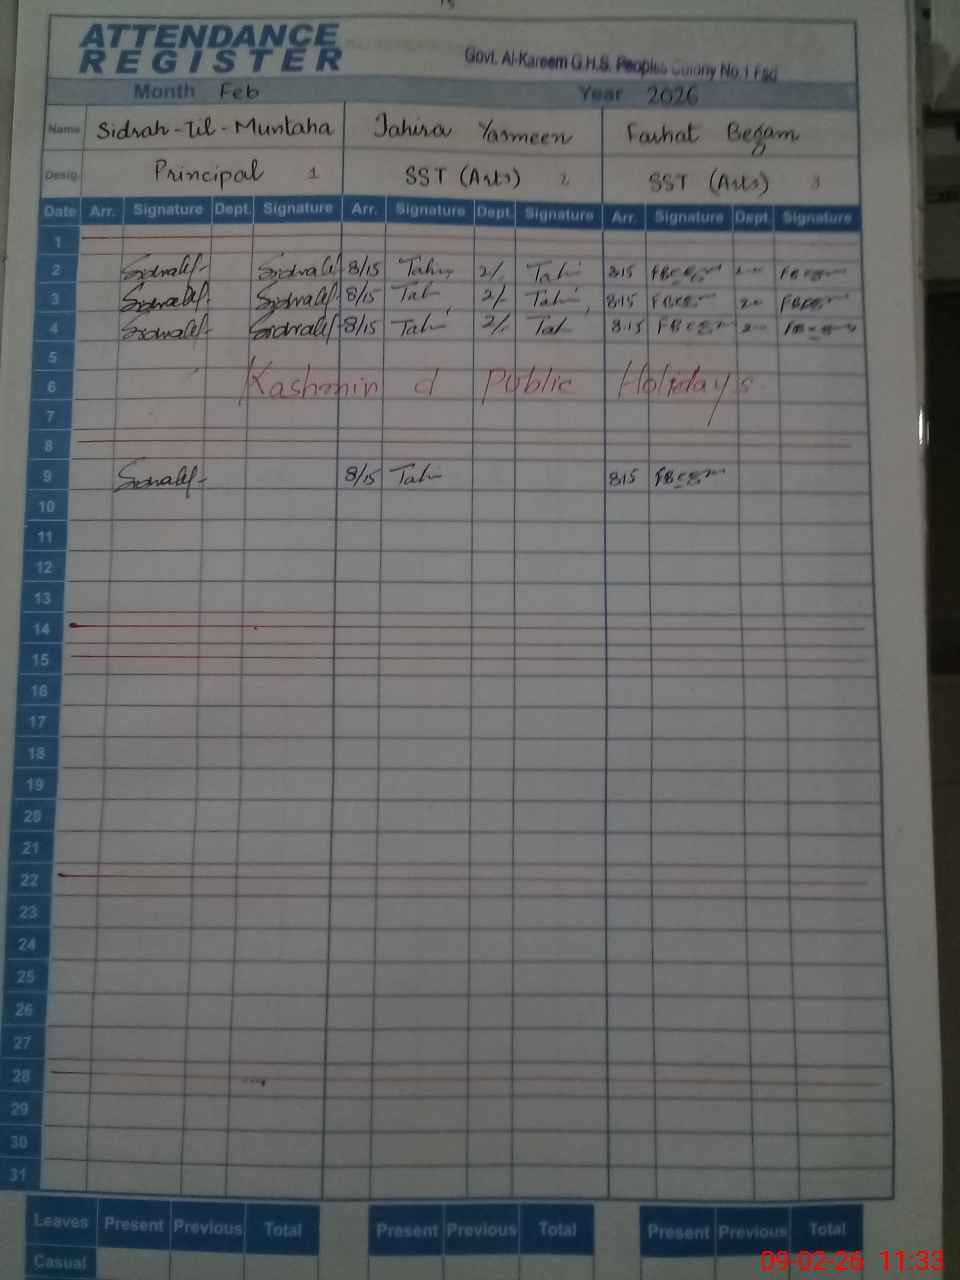 ATTENDANCE
REGISTER
Govt. Al-Kareem G.H.S. Peoples Colony No.1 Fsd
Month Feb Year 2026
Name Sidrah-Til-Muntaha Tahira Yasmeen Farhat Begam
Desig. Principal 1 SST (Arts) 2 SST (Arts) 3
Date Arr. Signature Dept. Signature Arr. Signature Dept. Signature Arr. Signature Dept. Signature
1
2 8/15 2/- 8:15
3 8/15 2/- 8:15
4 8/15 2/- 8:15
5
6 Kashmir d Public Holidays
7
8
9 8/15 8:15
10
11
12
13
14
15
16
17
18
19
20
21
22
23
24
25
26
27
28
29
30
31
Leaves Present Previous Total Present Previous Total Present Previous Total
Casual
09-02-26 11:33